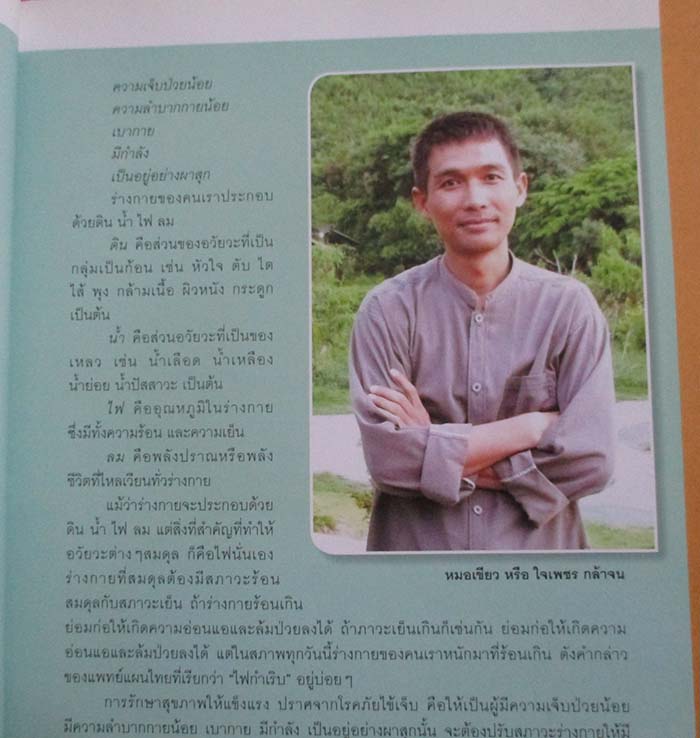 ความเจ็บป่วยน้อย
ความลำบากกายน้อย
เบากาย
มีกำลัง
เป็นอยู่อย่างผาสุก
ร่างกายของคนเราประกอบ
ด้วยดิน น้ำ ไฟ ลม
ดิน คือส่วนของอวัยวะที่เป็น
กลุ่มเป็นก้อน เช่น หัวใจ ตับ ไต
ไส้ พุง กล้ามเนื้อ ผิวหนัง กระดูก
เป็นต้น
น้ำ คือส่วนอวัยวะที่เป็นของ
เหลว เช่น น้ำเลือด น้ำเหลือง
น้ำย่อย น้ำปัสสาวะ เป็นต้น
ไฟ คืออุณหภูมิในร่างกาย
ซึ่งมีทั้งความร้อน และความเย็น
ลม คือพลังปราณหรือพลัง
ชีวิตที่ไหลเวียนทั่วร่างกาย
แม้ว่าร่างกายจะประกอบด้วย
ดิน น้ำ ไฟ ลม แต่สิ่งที่สำคัญที่ทำให้
อวัยวะต่างๆสมดุล ก็คือไฟนั่นเอง
ร่างกายที่สมดุลต้องมีสภาวะร้อน
สมดุลกับสภาวะเย็น ถ้าร่างกายร้อนเกิน
ย่อมก่อให้เกิดความอ่อนแอและล้มป่วยลงได้ ถ้าภาวะเย็นเกินก็เช่นกัน ย่อมก่อให้เกิดความ
อ่อนแอและล้มป่วยลงได้ แต่ในสภาพทุกวันนี้ร่างกายของคนเราหนักมาที่ร้อนเกิน ดังคำกล่าว
ของแพทย์แผนไทยที่เรียกว่า "ไฟกำเริบ" อยู่บ่อยๆ
การรักษาสุขภาพให้แข็งแรง ปราศจากโรคภัยไข้เจ็บ คือให้เป็นผู้มีความเจ็บป่วยน้อย
มีความลำบากกายน้อย เบากาย มีกำลัง เป็นอยู่อย่างผาสุกนั้น จะต้องปรับสภาวะร่างกายให้มี
หมอเขียว หรือ ใจเพชร กล้าจน